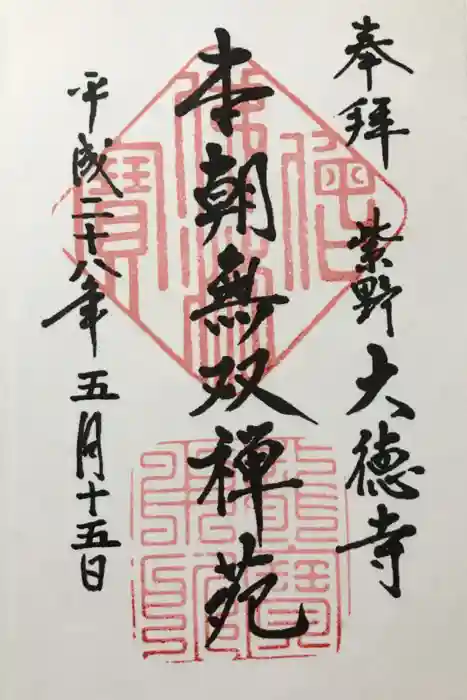 奉拝 紫野 大徳寺
本朝無双禅苑
平成二十八年 五月十五日